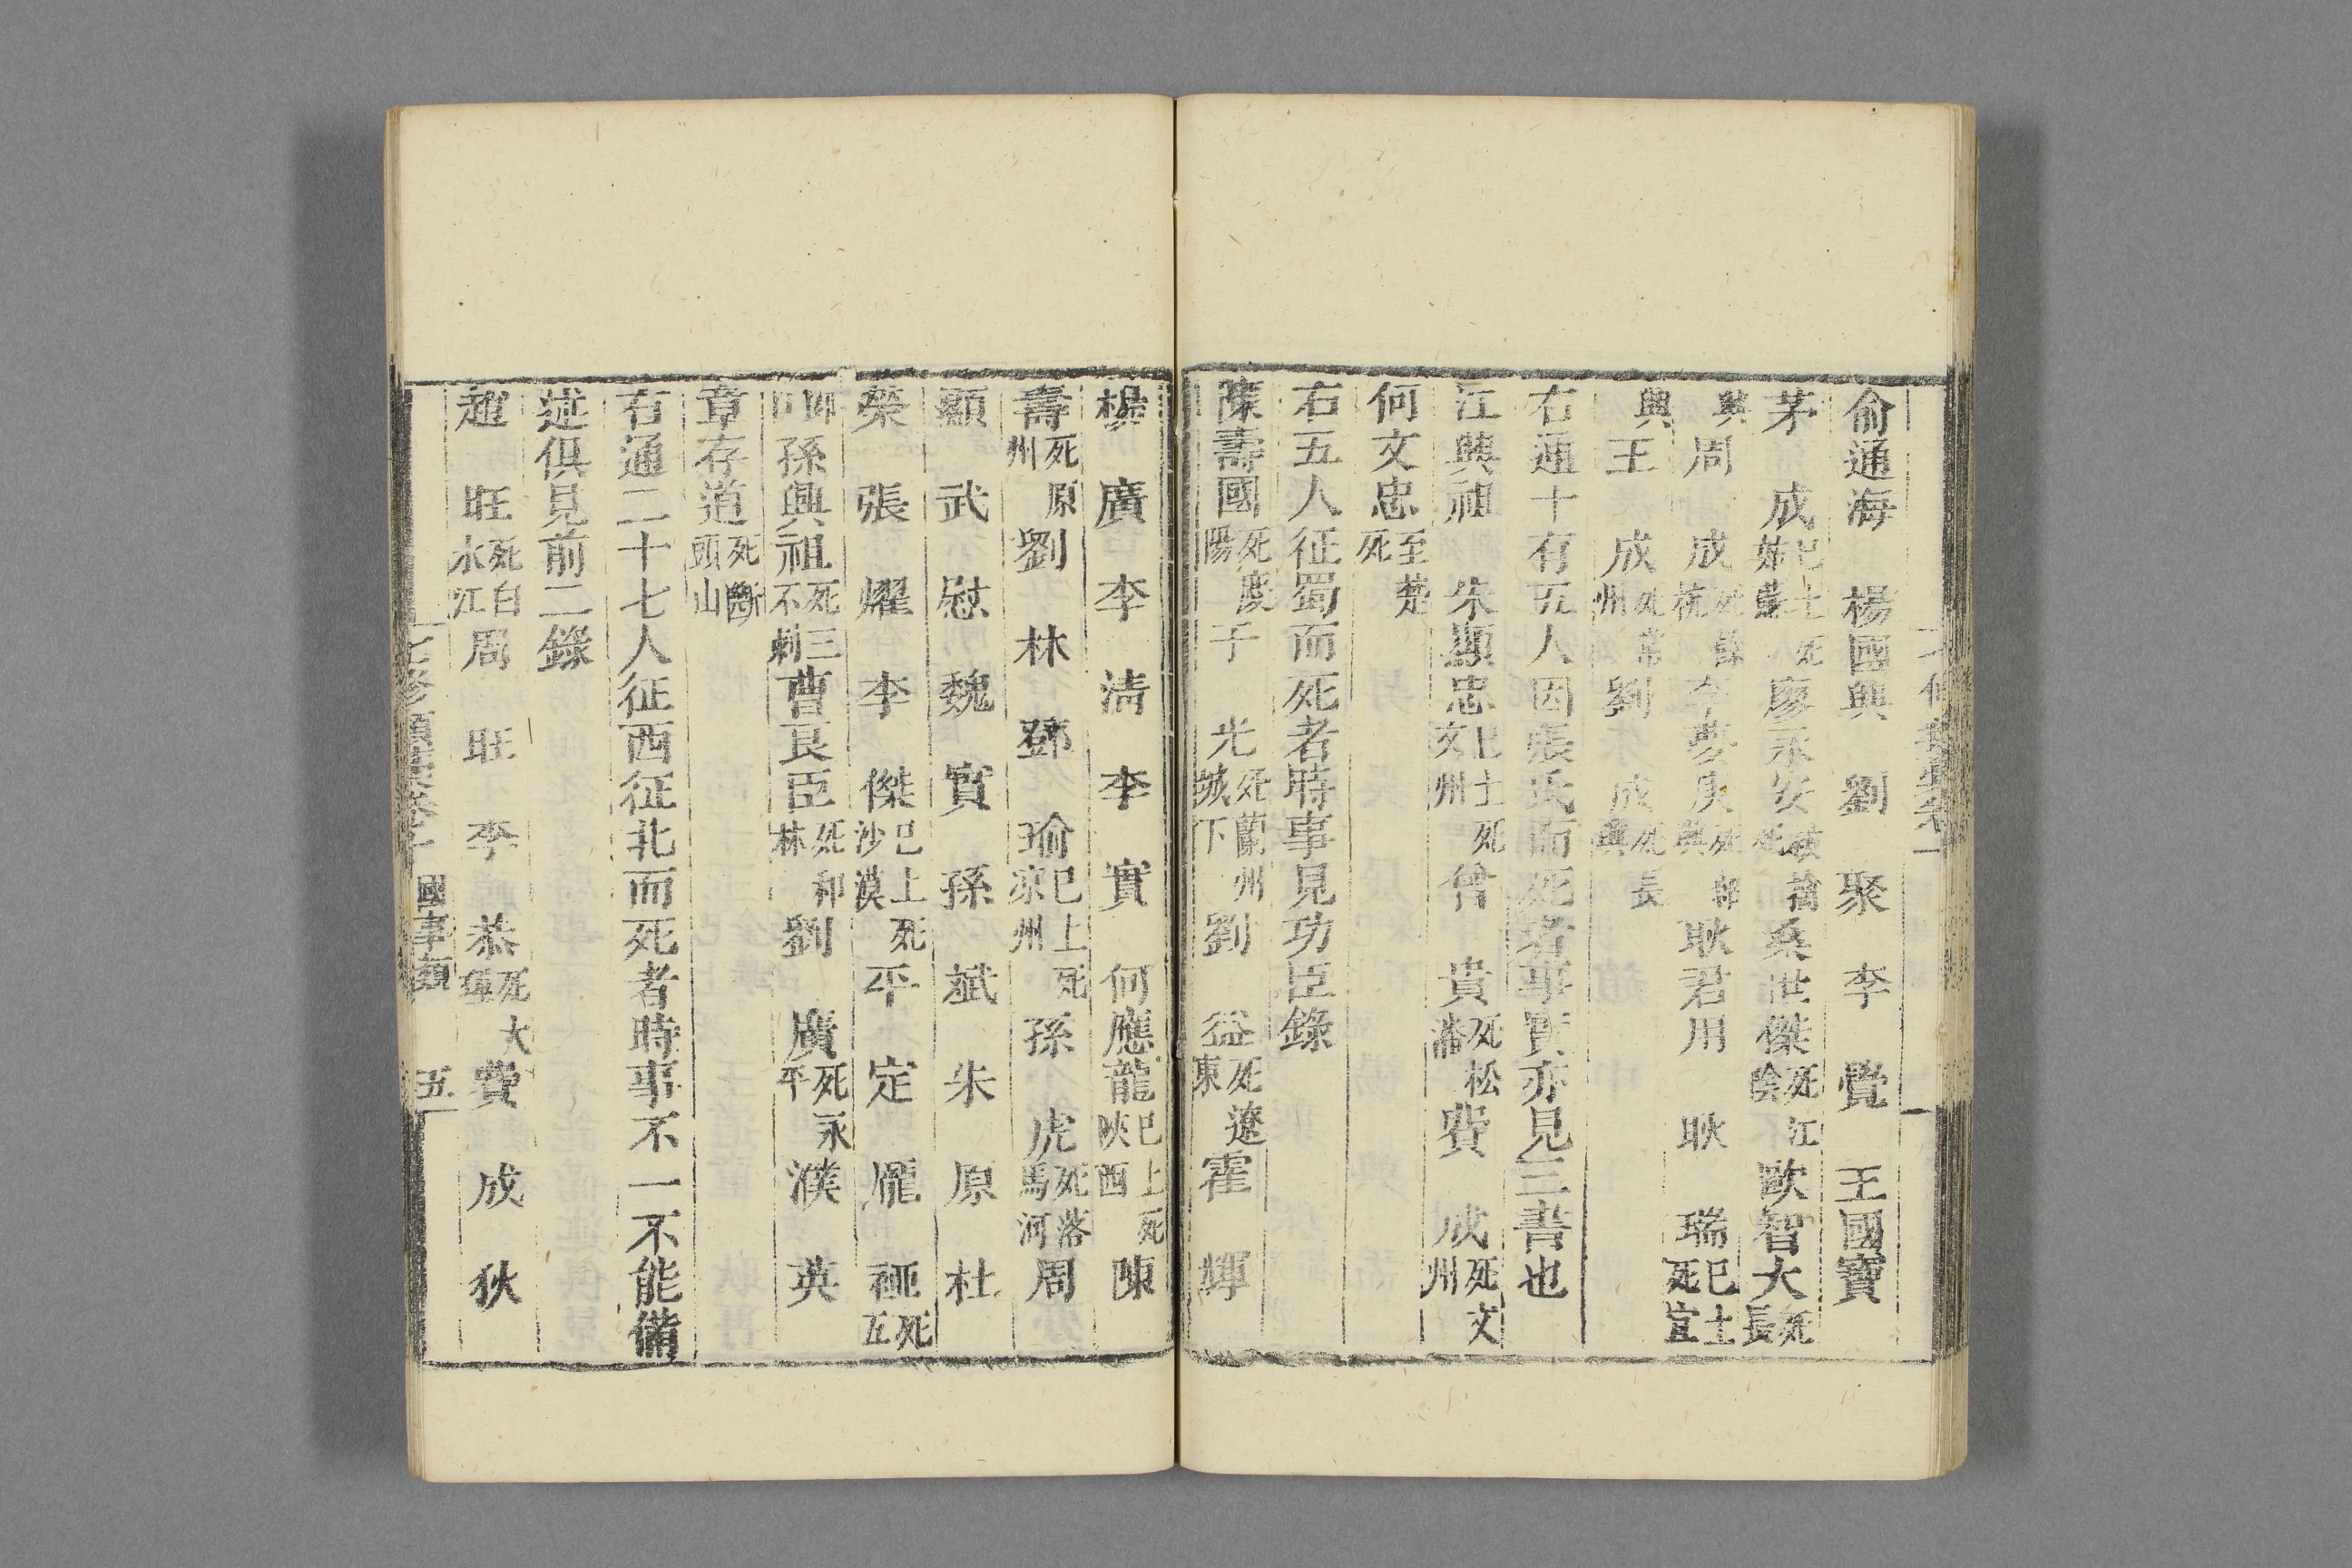 俞通海 楊國興 劉 聚 李 覺 王國寶
茅 成巳上死姊蘇 廖永安被擒死 桑世傑死江陰 歐智大死長
興 周 成死蘇杭 李夢庚死鄣興 耿君用 耿 瑞巳上死宜
興 王 成死常州 劉 成死長興
右通十有五人因張氏而死者事實亦見三書也
江興祖 朱顯忠巳上死文州 曾 貴死松潘 費 成死文州
何文忠至楚死
右五人征蜀而死者時事見功臣錄
陳壽國死慶陽 于 光死蘭州城下 劉 益死遼東 霍 輝
楊 廣 李 清 李 實 何應龍巳上死陝西 陳
壽死原州 劉 林 鄧 瑜巳上死凉州 孫 虎死落馬河 周
顯 武 慰 魏 實 孫 斌 朱 原 杜
榮 張 燿 李 傑巳上死沙漠 平 定 龐 禋死五
孫興祖死三不剌 曹良臣死和林 劉 廣死永平 濮 英
章存道死斷頭山
右通二十七人征西征北而死者時事不一不能備
述俱見前二錄
趙 旺死白水江 周 旺 李 恭死大 費 成 狄
七修類藁卷十 國事類 五